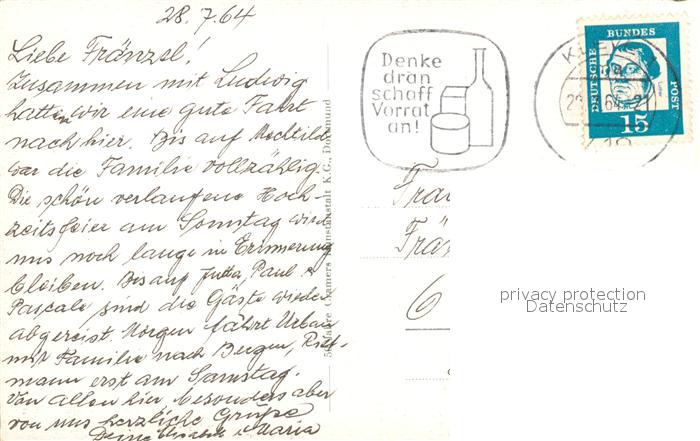 28.7.64
Liebe Fränzel!
Zusammen mit Ludwig
hatten wir eine gute Fahrt
nach hier. Bis auf Mechtilde
war die Familie vollzählig.
Die schön verlaufene Hoch-
zeitsfeier am Sonntag wird
uns noch lange in Erinnerung
bleiben. Bis auf Jutta, Paul &
Pascale sind die Gäste wieder
abgereist. Morgen fährt Urban
mit Familie nach Bergen,
mann erst am Samstag.
Von allen hier besonders aber
von uns herzliche Grüße
Deine Maria
Cramers Kunstanstalt K.G., Dortmund
Denke
dran
schaff
Vorrat
an!
DEUTSCHE
BUNDES
POST
15
Frä
6
privacy protection
Datenschutz